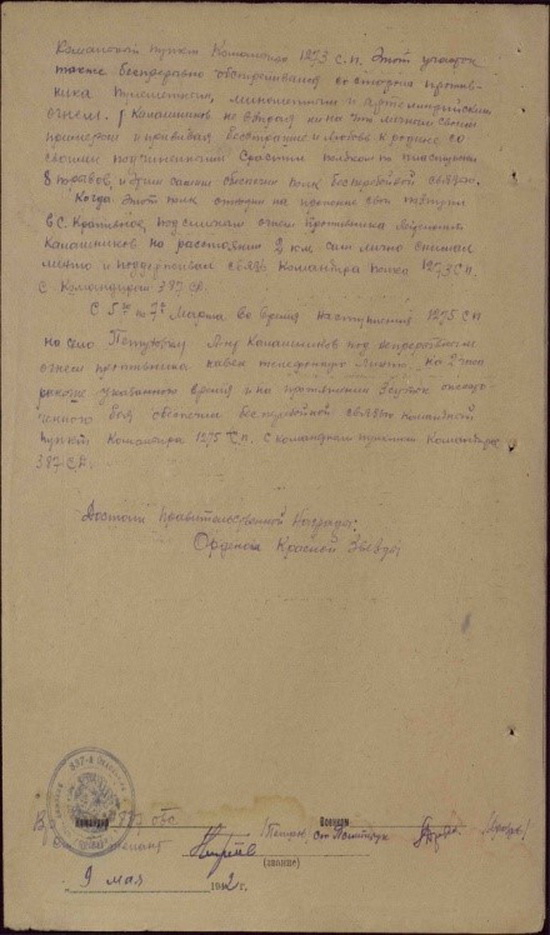 Командный пункт Командира 1273 с.п. Этот участок
также беспрерывно обстреливался со стороны против-
ника пулеметным, минометным и артиллерийским
огнем. Калашников не взирая ни на что личным своим
примером и прививая бесстрашие и любовь к родине со
своими подчиненными
8 и этим самым обеспечил полк бесперебойной связью.
Когда этот полк отходил на прежние свои позиции
в с. под сильным огнем противника лейтенант
Калашников на расстоянии 2 км. сам лично
линию и поддерживал связь Командира полка 1273 СП.
с Командиром 387 СД.
С 5го по 7е Марта во время наступления 1275 СП
на село Петровку Лейт Калашников под непрерывным
огнем противника навел телефонную линию на 2 часа
раньше указанного времени и на протяжении 3 суток ожесто-
ченного боя обеспечил бесперебойной связью командный
пункт Командира 1275 СП. с командным пунктом Командира
387 СД.
Достоин Правительственной Награды:
Орденом Красной Звезды
387-я
Командир
Военком
/Петров/
Ст. Политрук
(звание)
9 мая 1942 г.